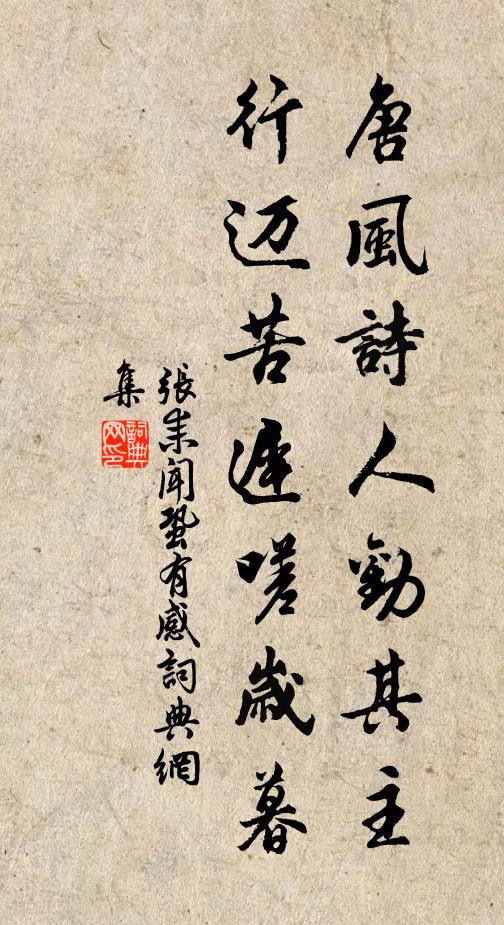 唐風詩人勸其主
行迈苦遲嗟歲暮
張耒聞蛩有感詞典網
集
詞典
网印